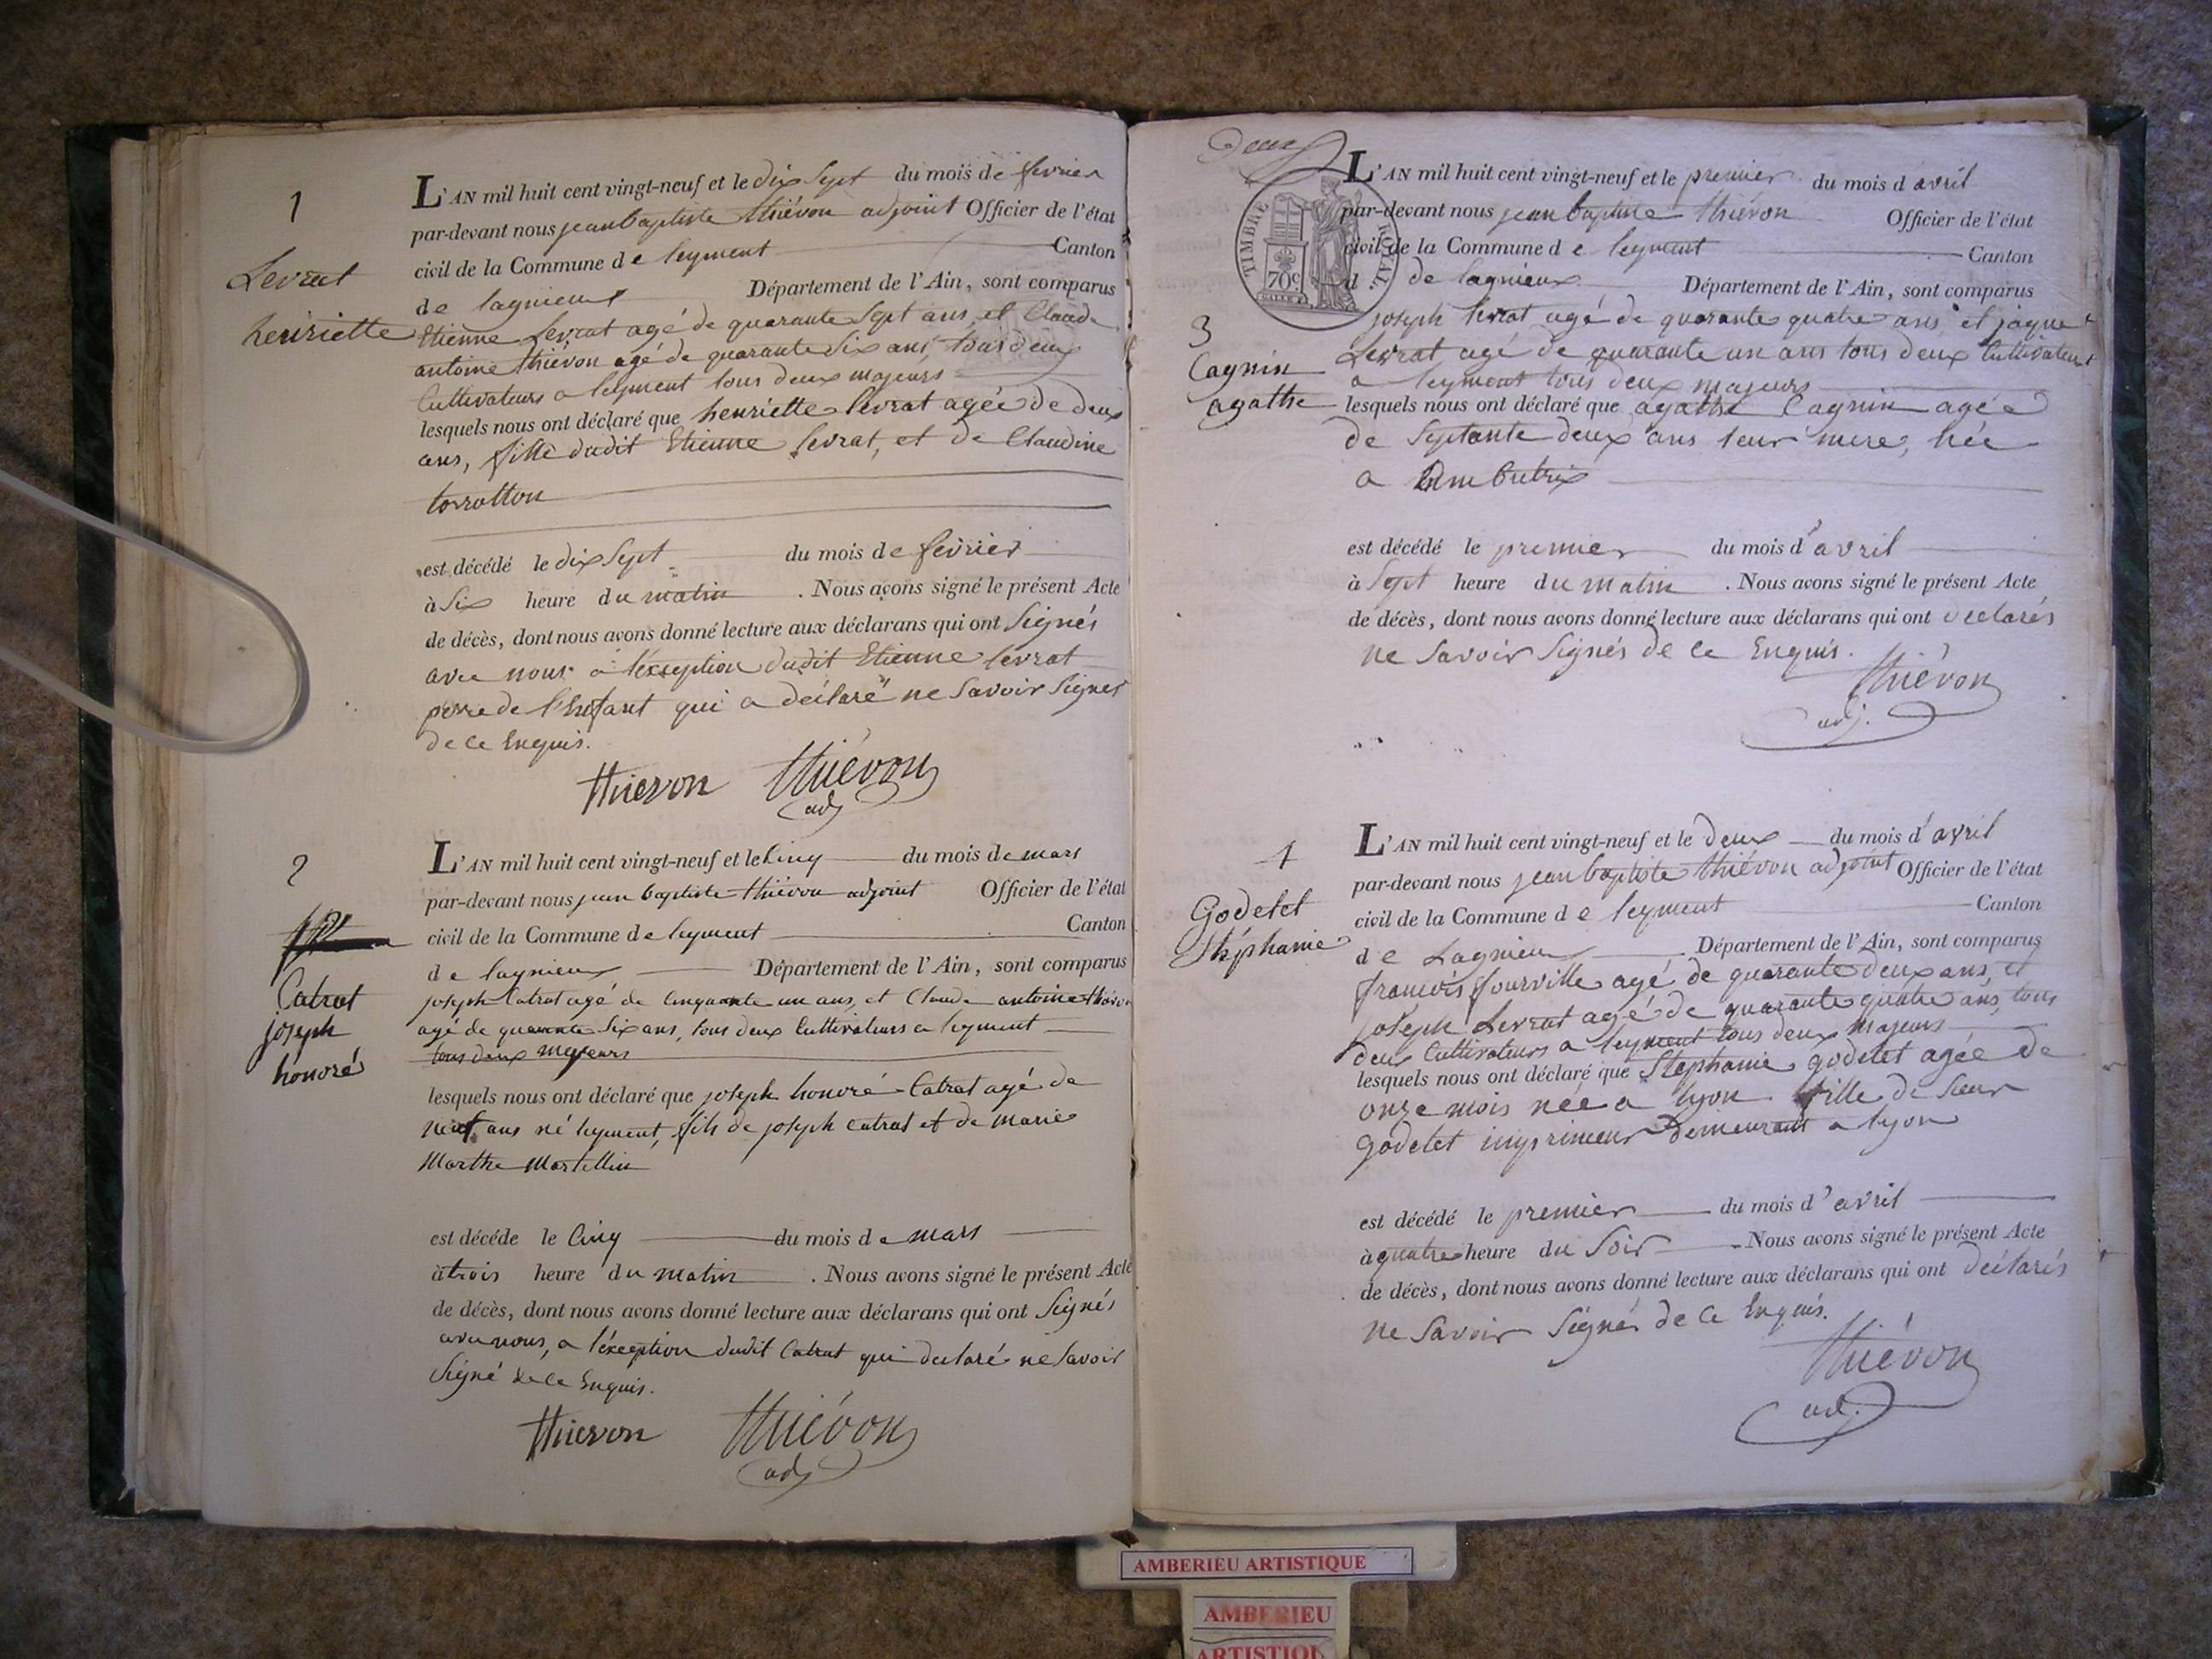 1
Levrat
henriette
L'AN mil huit cent vingt-neuf et le dix Sept du mois de fevrier
par-devant nous jean baptiste thiévon adjoint Officier de l'état
civil de la Commune de leyment Canton
de lagnieux Département de l'Ain, sont comparus
Etienne Levrat agé de quarante Sept ans et Claude
antoine thievon agé de quarante Six ans, tous deux
Cultivateurs a leyment tous deux majeurs
lesquels nous ont déclaré que henriette levrat agée de deux
ans, fille dudit Etienne levrat, et de Claudine
torratton
est décédé le dix Sept du mois de fevrier
à Six heure du matin . Nous avons signé le présent Acte
de décès, dont nous avons donné lecture aux déclarans qui ont Signés
avec nous a l'éxception dudit Etienne levrat
perre de l'hefant qui a déclaré ne Savoir Signer
de ce Enquis.
thievon thiévon
adj
2
Catrat
joseph
honoré
L'AN mil huit cent vingt-neuf et le Cinq du mois de mars
par-devant nous jean baptiste thiévon adjoint Officier de l'état
civil de la Commune de leyment Canton
de lagnieux Département de l'Ain, sont comparus
joseph Catrat agé de Cinquante un ans, et Claude antoine thievon
agé de quarante Six ans, tous deux Cultivateurs a leyment
tous deux majeurs
lesquels nous ont déclaré que joseph honoré Catrat agé de
neuf ans né leyment, fils de joseph catrat et de marie
Marthe Martellin
est décéde le Cinq du mois de mars
à trois heure du matin . Nous avons signé le présent Acte
de décès, dont nous avons donné lecture aux déclarans qui ont Signés
avec nous, a l'éxception dudit Catrat qui declaré ne Savoir
Signé de ce Enquis.
thievon thiévon
adj
Deux
TIMBRE ROYAL.
70c
3
Cagnin
agathe
L'AN mil huit cent vingt-neuf et le premier du mois d avril
par-devant nous jean baptiste thiévon Officier de l'état
civil de la Commune de leyment Canton
d . de lagnieux Département de l'Ain, sont comparus
joseph levrat agé de quarante quatre ans et jaque
Levrat agé de quarante un ans tous deux Cultivateurs
a leyment tous deux majeurs
lesquels nous ont déclaré que agathe Cagnin agée
de Septante deux ans leur mere, née
a Ambutrix
est décédé le premier du mois d'avril
à Sept heure du matin . Nous avons signé le présent Acte
de décès, dont nous avons donné lecture aux déclarans qui ont declarés
ne Savoir Signés de ce Enquis.
thiévon
adj.
4
Godelet
Stéphanie
L'AN mil huit cent vingt-neuf et le deux du mois d'avril
par-devant nous jean baptiste thiévon adjoint Officier de l'état
civil de la Commune de leyment Canton
de Lagnieu Département de l'Ain, sont comparus
francois fourville agé de quarante deux ans, et
joseph Levrat agé de quarante quatre ans, tous
deux Cultivateurs a leyment tous deux majeurs
lesquels nous ont déclaré que Stephanie godelet agée de
onze mois née a lyon fille de Sieur
godelet imprimeur demeurant a lyon
est décédé le premier du mois d'avril
à quatre heure du Soir . Nous avons signé le présent Acte
de décès, dont nous avons donné lecture aux déclarans qui ont déclarés
ne Savoir Signés de ce Enquis.
thiévon
ad.
AMBERIEU ARTISTIQUE
AMBERIEU
ARTISTIQU